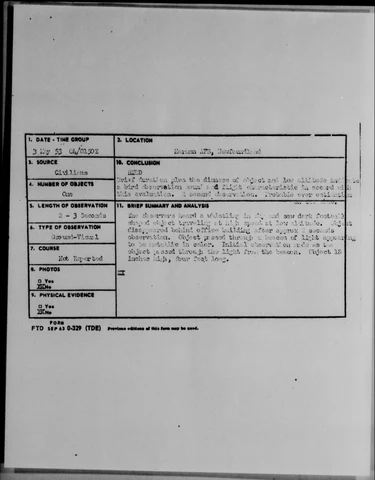 1. DATE - TIME GROUP
3 May 53 04/0150Z
2. LOCATION
Harmon AFB, Newfoundland
3. SOURCE
Civilians
10. CONCLUSION
BIRD
Brief duration plus the dimness of object and low altitude
a bird observation sound and flight characteristic in accord with
this evaluation. 2 second observation. Probable over estimation
4. NUMBER OF OBJECTS
One
5. LENGTH OF OBSERVATION
2 - 3 Seconds
11. BRIEF SUMMARY AND ANALYSIS
Two observers heard a whistling in sky and saw dark football
shaped object traveling at high speed at low altitude. Object
disappeared behind office building after approx 2 seconds
observation. Object passed through a beacon of light appearing
to be metallic in color. Initial observation made as the
object passed through the light from the beacon. Object 18
inches high, four feet long.
6. TYPE OF OBSERVATION
Ground-Visual
7. COURSE
Not Reported
8. PHOTOS
□ Yes
XXNo
9. PHYSICAL EVIDENCE
□ Yes
XXNo
FORM
FTD SEP 63 0-329 (TDE) Previous editions of this form may be used.